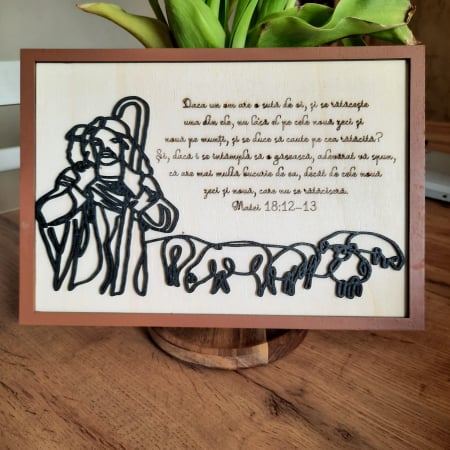 Daca un om are o sută de oi, și se rătăcește
una din ele, nu lasă el pe cele nouă zeci și
nouă pe munți, și se duce să caute pe cea rătăcită?
Și, dacă i se întâmplă să o găsească, adevărat vă spun,
că are mai multă bucurie de ea, decât de cele nouă
zeci și nouă, care nu se rătăciseră.
Matei 18:12-13